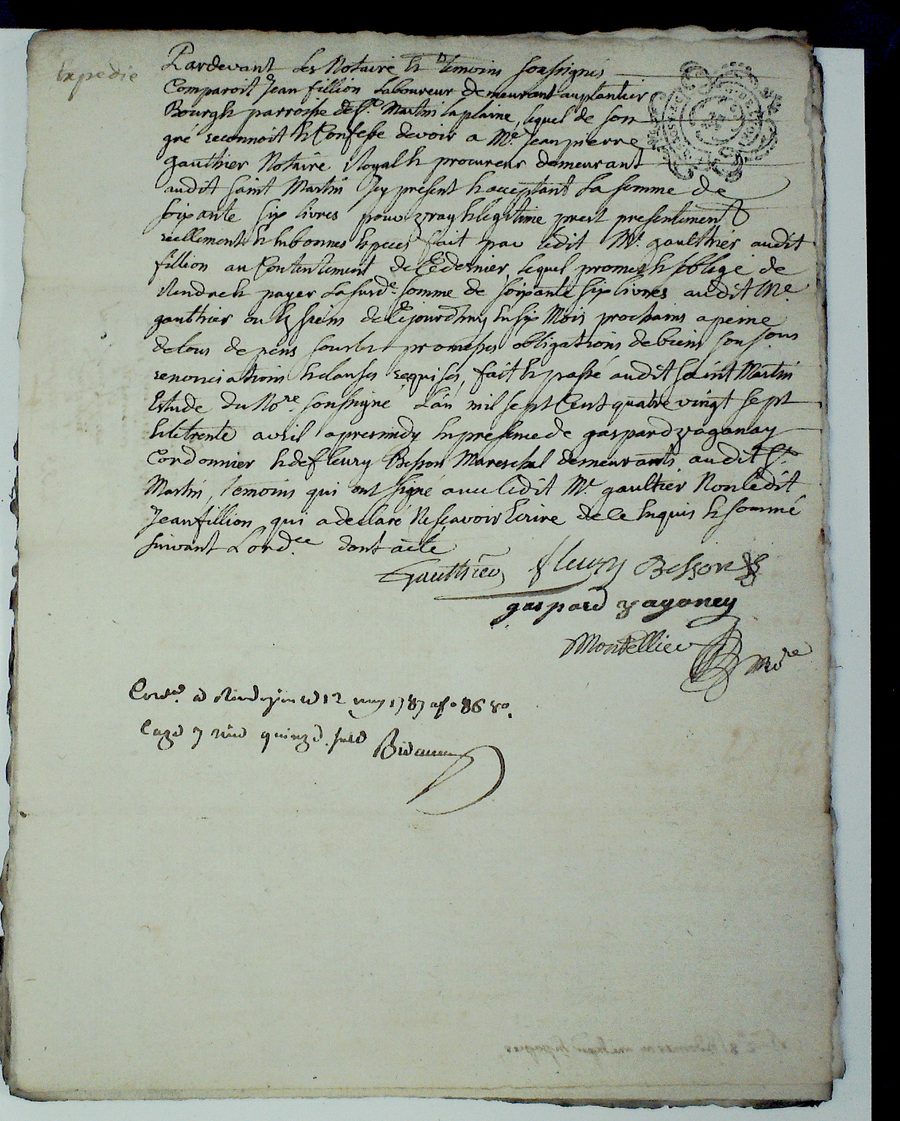 Expedie
Pardevant les Notaire & temoins soussignes
Comparoit Sr jean fillion Laboureur demeurant au plantier
Bourg & parroisse de St. Martin la plaine, lequel de son
gré reconnoit & Confesse devoir a Me. jean pierre
gauthier Notaire Royal & procureur demeurant
audit saint Martin Icy present & acceptant La somme de
soixante six livres pour vray & legitime prest presentement
reellement & en bonnes Especes fait par ledit Me. gaulthier audit
fillion au Contentement de Ce dernier, lequel promet & soblige de
Rendre & payer La susde. somme de soixante six livres audit Me.
gauthier ou les siens de Ce jourdhuy en six Mois prochains a peine
de tous depens promesses obligations de biens
renonciations & clauses requises, fait & passé audit saint Martin
Etude du Nore. soussigné L'an mil sept Cent quatre vingt sept
& le trente avril apres midy en presence de gaspard zaganay
Cordonnier & de fleury Besson Mareschal demeurants audit St.
Martin, temoins qui ont signé avec ledit Me. gaultier Non ledit
jean fillion qui a declaré ne scavoir Ecrire de ce Enquis & sommé
suivant Lordce. dont acte
Gauthier fleury Besson
gaspard zaganey
Montellier Nore
le 12 may 1787 fo 86 Ro.
quinze sols